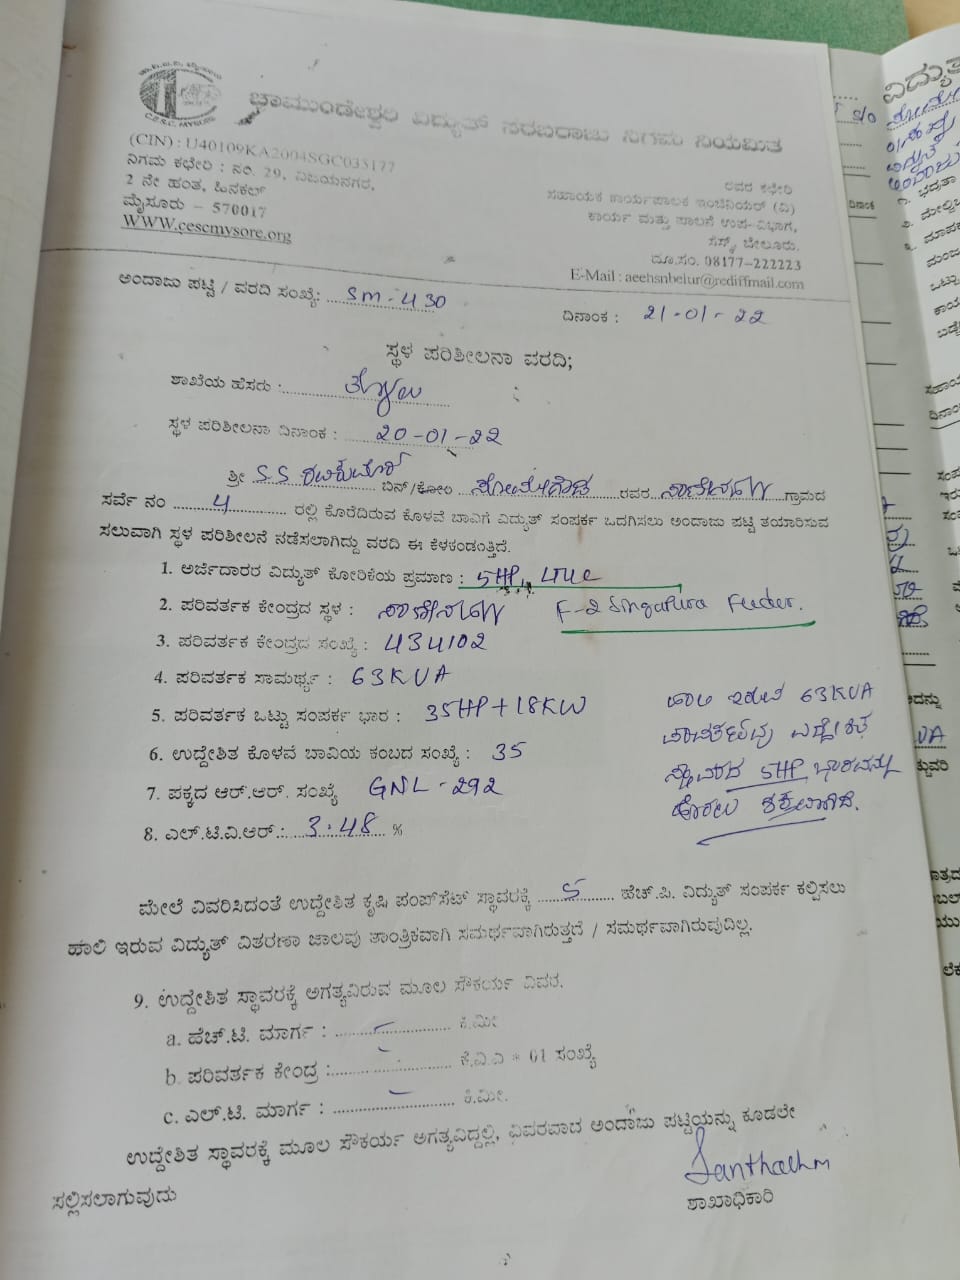 ಚಾಮುಂಡೇಶ್ವರಿ ವಿದ್ಯುತ್ ಸರಬರಾಜು ನಿಗಮ ನಿಯಮಿತ
C.E.S.C. MYSORE
(CIN) : U40109KA2004SGC035177
ನಿಗಮ ಕಛೇರಿ : ನಂ. 29, ವಿಜಯನಗರ,
2 ನೇ ಹಂತ, ಹಿನಕಲ್
ಮೈಸೂರು – 570017
WWW.cescmysore.org
ರವರ ಕಛೇರಿ
ಸಹಾಯಕ ಕಾರ್ಯಪಾಲಕ ಇಂಜಿನಿಯರ್ (ವಿ)
ಕಾರ್ಯ ಮತ್ತು ಪಾಲನೆ ಉಪ-ವಿಭಾಗ,
ಸೆಸ್ಕ್, ಬೇಲೂರು.
ದೂ.ಸಂ. 08177-222223
E-Mail : aeehsnbelur@rediffmail.com
ಅಂದಾಜು ಪಟ್ಟಿ / ವರದಿ ಸಂಖ್ಯೆ: SM-430
ದಿನಾಂಕ : 21-01-22
ಸ್ಥಳ ಪರಿಶೀಲನಾ ವರದಿ;
ಶಾಖೆಯ ಹೆಸರು :
ಸ್ಥಳ ಪರಿಶೀಲನಾ ದಿನಾಂಕ : 20-01-22
ಶ್ರೀ S.S ಬಿನ್/ಕೋಂ ರವರ ಗ್ರಾಮದ
ಸರ್ವೆ ನಂ 4 ರಲ್ಲಿ ಕೊರೆದಿರುವ ಕೊಳವೆ ಬಾವಿಗೆ ವಿದ್ಯುತ್ ಸಂಪರ್ಕ ಒದಗಿಸಲು ಅಂದಾಜು ಪಟ್ಟಿ ತಯಾರಿಸುವ
ಸಲುವಾಗಿ ಸ್ಥಳ ಪರಿಶೀಲನೆ ನಡೆಸಲಾಗಿದ್ದು ವರದಿ ಈ ಕೆಳಕಂಡಂತ್ತಿದೆ.
1. ಅರ್ಜಿದಾರರ ವಿದ್ಯುತ್ ಕೋರಿಕೆಯ ಪ್ರಮಾಣ : 5HP,
2. ಪರಿವರ್ತಕ ಕೇಂದ್ರದ ಸ್ಥಳ : F-2 Singapura Feeder.
3. ಪರಿವರ್ತಕ ಕೇಂದ್ರದ ಸಂಖ್ಯೆ : 434102
4. ಪರಿವರ್ತಕ ಸಾಮರ್ಥ್ಯ : 63KVA
5. ಪರಿವರ್ತಕ ಒಟ್ಟು ಸಂಪರ್ಕ ಭಾರ : 35HP+18KW
6. ಉದ್ದೇಶಿತ ಕೊಳವೆ ಬಾವಿಯ ಕಂಬದ ಸಂಖ್ಯೆ : 35
7. ಪಕ್ಕದ ಆರ್.ಆರ್. ಸಂಖ್ಯೆ GNL-292
8. ಎಲ್.ಟಿ.ವಿ.ಆರ್.: 3.48 %
ಹಾಲಿ ಇರುವ 63KVA
ಪರಿವರ್ತಕವು ಉದ್ದೇಶಿತ
ಸ್ಥಾವರದ 5HP ಭಾರವನ್ನು
ಹೊರಲು ಶಕ್ತವಾಗಿದೆ.
ಮೇಲೆ ವಿವರಿಸಿದಂತೆ ಉದ್ದೇಶಿತ ಕೃಷಿ ಪಂಪ್‌ಸೆಟ್ ಸ್ಥಾವರಕ್ಕೆ 5 ಹೆಚ್.ಪಿ. ವಿದ್ಯುತ್ ಸಂಪರ್ಕ ಕಲ್ಪಿಸಲು
ಹಾಲಿ ಇರುವ ವಿದ್ಯುತ್ ವಿತರಣಾ ಜಾಲವು ತಾಂತ್ರಿಕವಾಗಿ ಸಮರ್ಥವಾಗಿರುತ್ತದೆ / ಸಮರ್ಥವಾಗಿರುವುದಿಲ್ಲ.
9. ಉದ್ದೇಶಿತ ಸ್ಥಾವರಕ್ಕೆ ಅಗತ್ಯವಿರುವ ಮೂಲ ಸೌಕರ್ಯ ವಿವರ.
a. ಹೆಚ್.ಟಿ. ಮಾರ್ಗ : – ಕಿ.ಮೀ
b. ಪರಿವರ್ತಕ ಕೇಂದ್ರ : – ಕೆ.ವಿ.ಎ * 01 ಸಂಖ್ಯೆ
c. ಎಲ್.ಟಿ. ಮಾರ್ಗ : – ಕಿ.ಮೀ.
ಉದ್ದೇಶಿತ ಸ್ಥಾವರಕ್ಕೆ ಮೂಲ ಸೌಕರ್ಯ ಅಗತ್ಯವಿದ್ದಲ್ಲಿ, ವಿವರವಾದ ಅಂದಾಜು ಪಟ್ಟಿಯನ್ನು ಕೂಡಲೇ
ಸಲ್ಲಿಸಲಾಗುವುದು
ಶಾಖಾಧಿಕಾರಿ